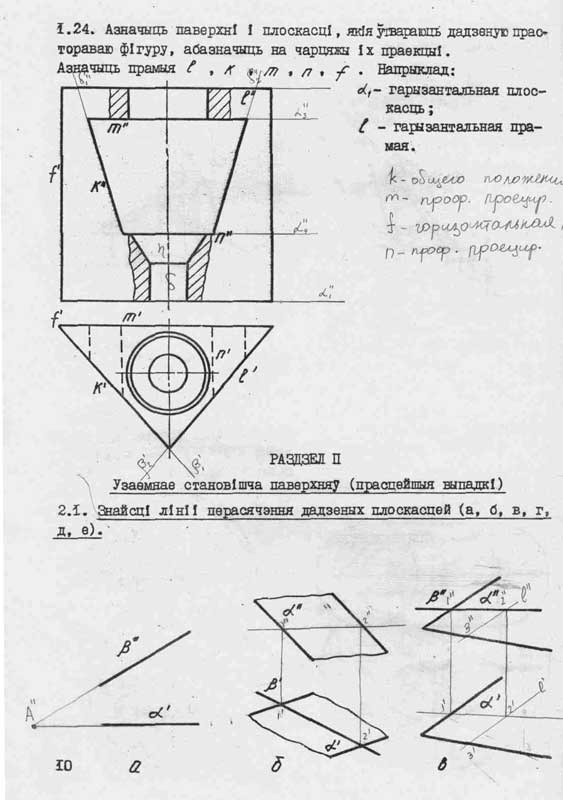 1.24. Азначыць паверхні і плоскасці, якія ўтвараюць дадзеную прас-
тораваю фігуру, абазначыць на чарцяжы іх праекцыі.
Азначыць прамыя ℓ, к, m, n, f. Напрыклад:
α₁ - гарызантальная плос-
касць;
ℓ - гарызантальная пра-
мая.
k - общего положени
m - проф. проецир.
f - горизонтальная
n - проф. проецир.
ℓ"
α₂"
m"
f'
к"
n"
α₁"
f' m'
к' n' ℓ'
β₂' β₁'
РАЗДЗЕЛ П
Узаемнае становішча паверхняў (прасцейшыя выпадкі)
2.1. Знайсці лініі перасячэння дадзеных плоскасцей (а, б, в, г,
д, е).
β" α" β" 1" α" 2" ℓ"
1" 2" 3"
A" α' β' 1' α' 2' 1' α' 2' 3' ℓ'
10 а б в